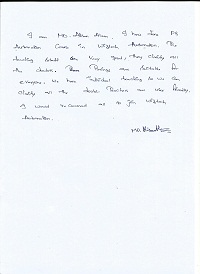 I am MD. Alam Ansari. I have done PG
Automation Course in Wiztech Automation. The
teaching Staff are Very good, they clarify all
the doubts. Timings are Suitable for
everyone. We have individual teaching so we can
clarify all the doubt. Teachers are also friendly.
I would recommend all to join Wiztech
Automation.
MD.